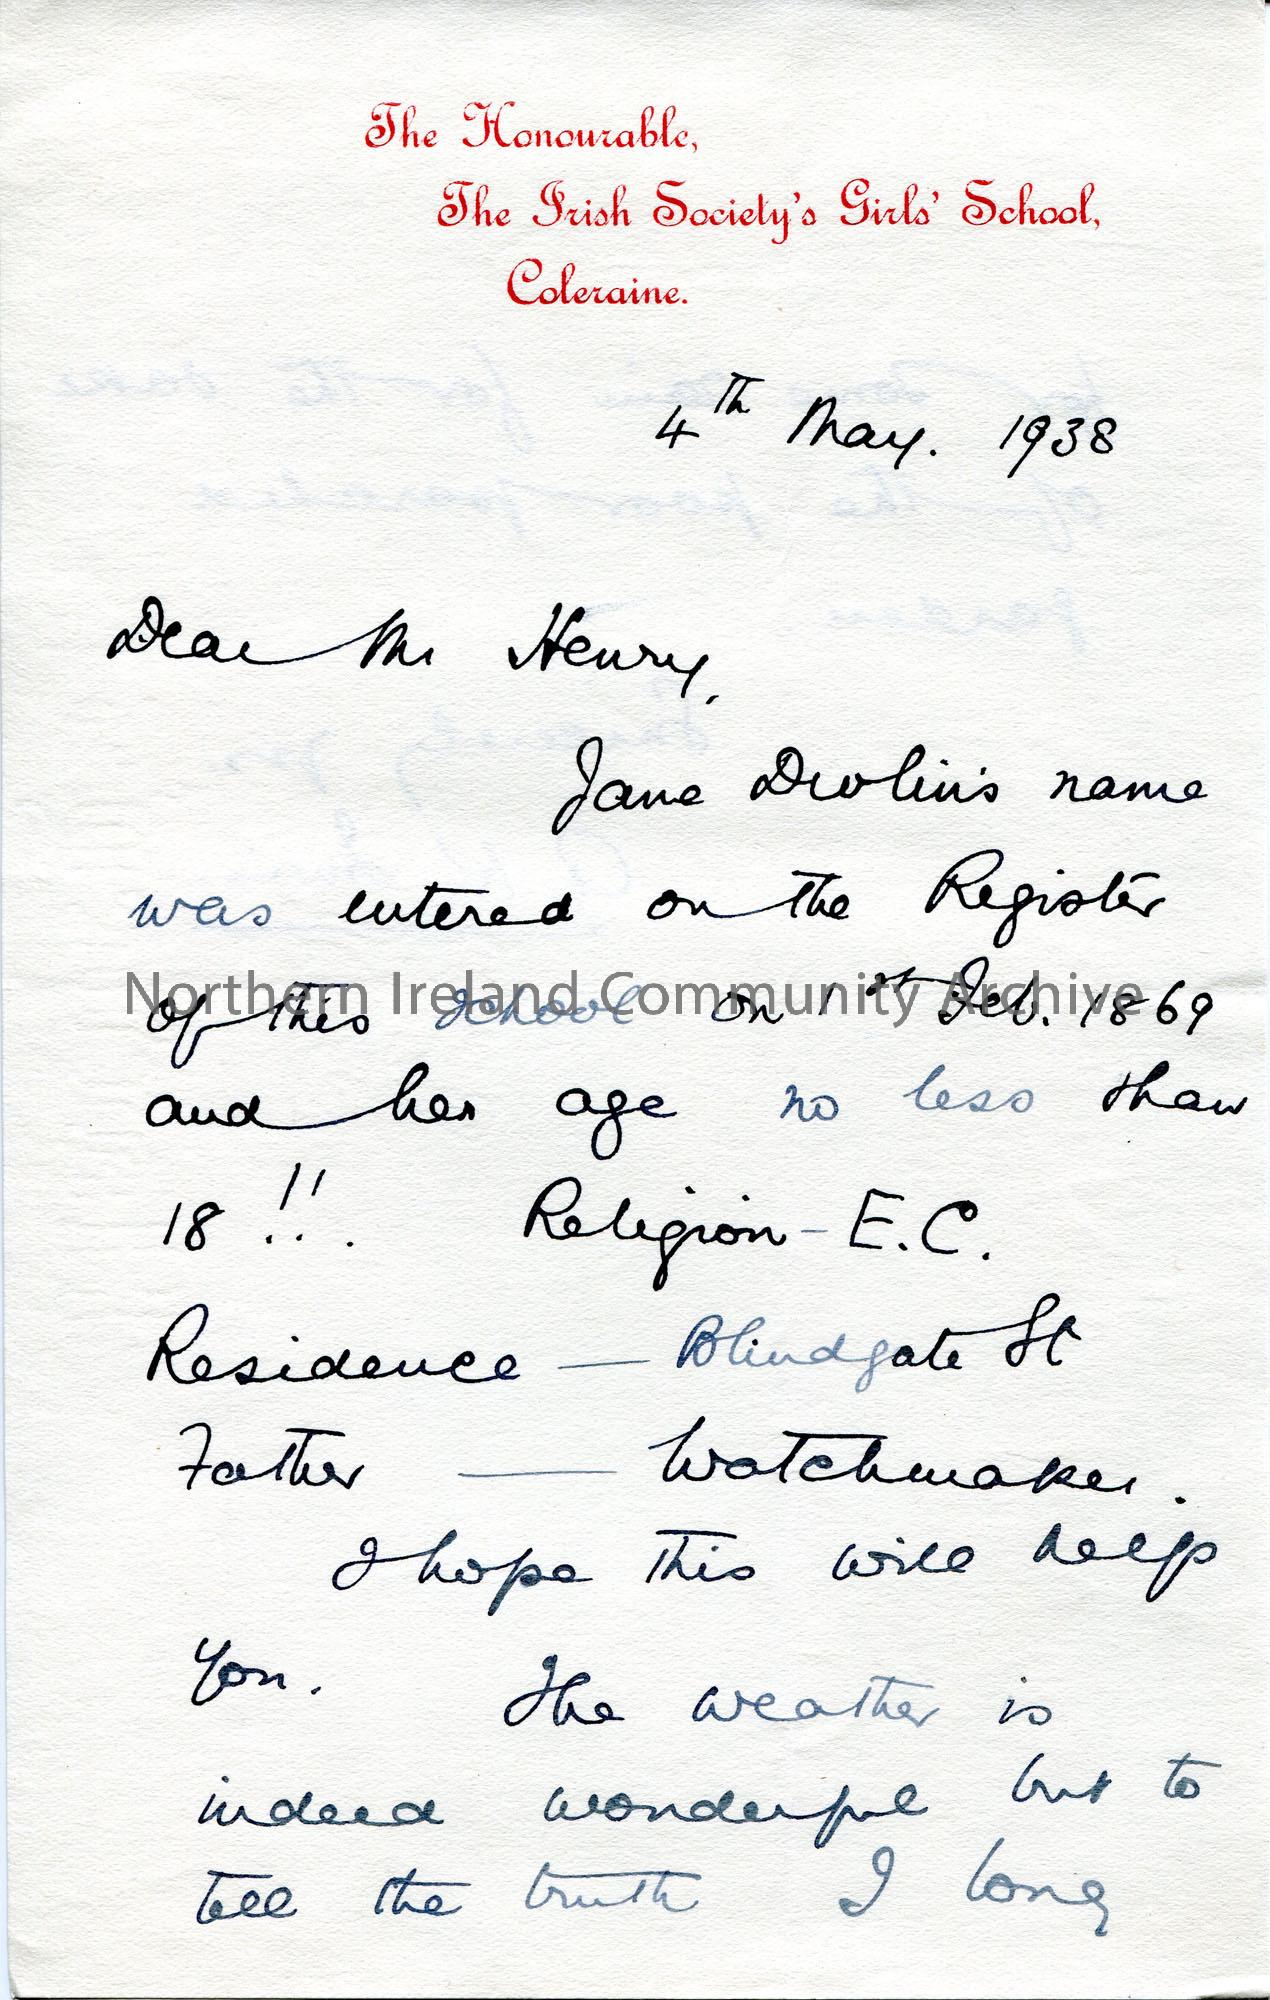 The Honourable,
The Irish Society's Girls' School,
Coleraine.
4th May. 1938
Dear Mr Henry,
Jane Devlin's name
was entered on the Register
of this school on 1st Feb. 1869
Northern Ireland Community Archive
and her age no less than
18 !!. Religion - E.C.
Residence — Blindgate St
Father — Watchmaker.
I hope this will help
you. The weather is
indeed wonderful but to
tell the truth I long